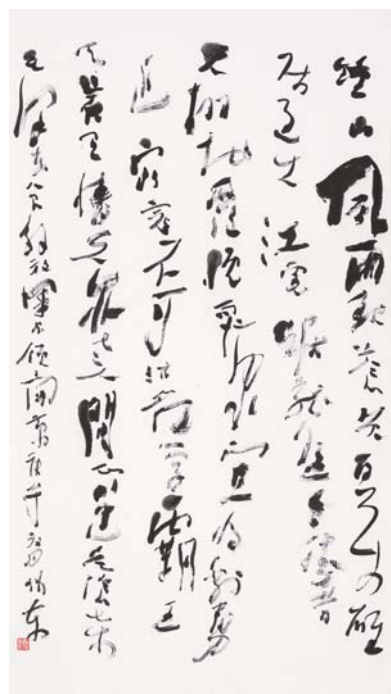 鍾山風雨起蒼黄百万雄
师过大江虎踞龍盤今勝昔
天翻地覆慨而慷宜将剩勇
追窮寇不可沽名学霸王
天若有情天亦老人間正道是滄桑
毛泽东人民解放軍占领南京